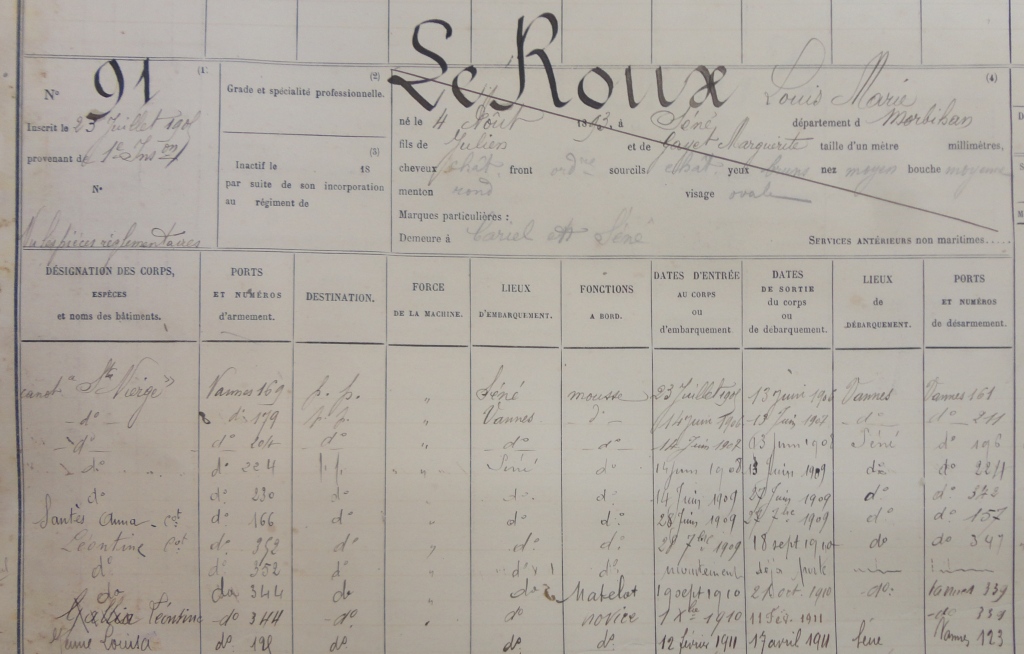 Le Roux
Louis Marie
N° 91 (1)
Inscrit le 23 Juillet
provenant de
N°
Vu les pièces réglementaires
(2)
Grade et spécialité professionnelle.
(3)
Inactif le 18
par suite de son incorporation
au régiment de
(4)
né le 4 Août 1893, à Séné département d Morbihan
fils de Julien et de Marguerite taille d'un mètre millimètres,
cheveux chât. front ord re sourcils chât. yeux nez moyen bouche moyenne
menton rond visage ovale
Marques particulières :
Demeure à Cariel en Séné
SERVICES ANTÉRIEURS non maritimes.....
DÉSIGNATION DES CORPS, ESPÈCES et noms des bâtiments.
PORTS ET NUMÉROS d'armement.
DESTINATION.
FORCE DE LA MACHINE.
LIEUX D'EMBARQUEMENT.
FONCTIONS A BORD.
DATES D'ENTRÉE AU CORPS ou d'embarquement
DATES DE SORTIE du corps ou de débarquement.
LIEUX de DÉBARQUEMENT.
PORTS ET NUMÉROS de désarmement.
canot "Ste Vierge" Vannes 169 p. p. " Séné mousse 23 Juillet 13 juin 1906 Vannes Vannes 161
d° d° 179 p. p. " Vannes d° 14 juin 1906 13 Juin 1907 d° d° 211
d° d° 204 d° " d° d° 14 Juin 13 juin 1908 Séné d° 196
d° d° 224 p. p. " Séné d° 14 juin 1908 13 Juin 1909 d° d° 224
d° d° 230 " d° d° 14 Juin 1909 27 Juin 1909 d° d° 373
Santès Anna cot d° 166 d° " d° d° 28 Juin 1909 7bre 1909 d° d° 157
Léontine cot d° 352 d° " d° d° 28 7bre 1909 18 sept 1910 d° d° 347
d° d° 352 d° " d° d° déjà porté
d° d° 344 d° " d° Matelot 19 sept 1910 2 oct. 1910 d° Vannes 339
Léontine d° 344 d° " d° novice 1 Xbre 1910 11 Fév. 1911 d° 339
Louisa d° 128 d° d° d° 12 février 1911 17 avril 1911 Séné Vannes 123